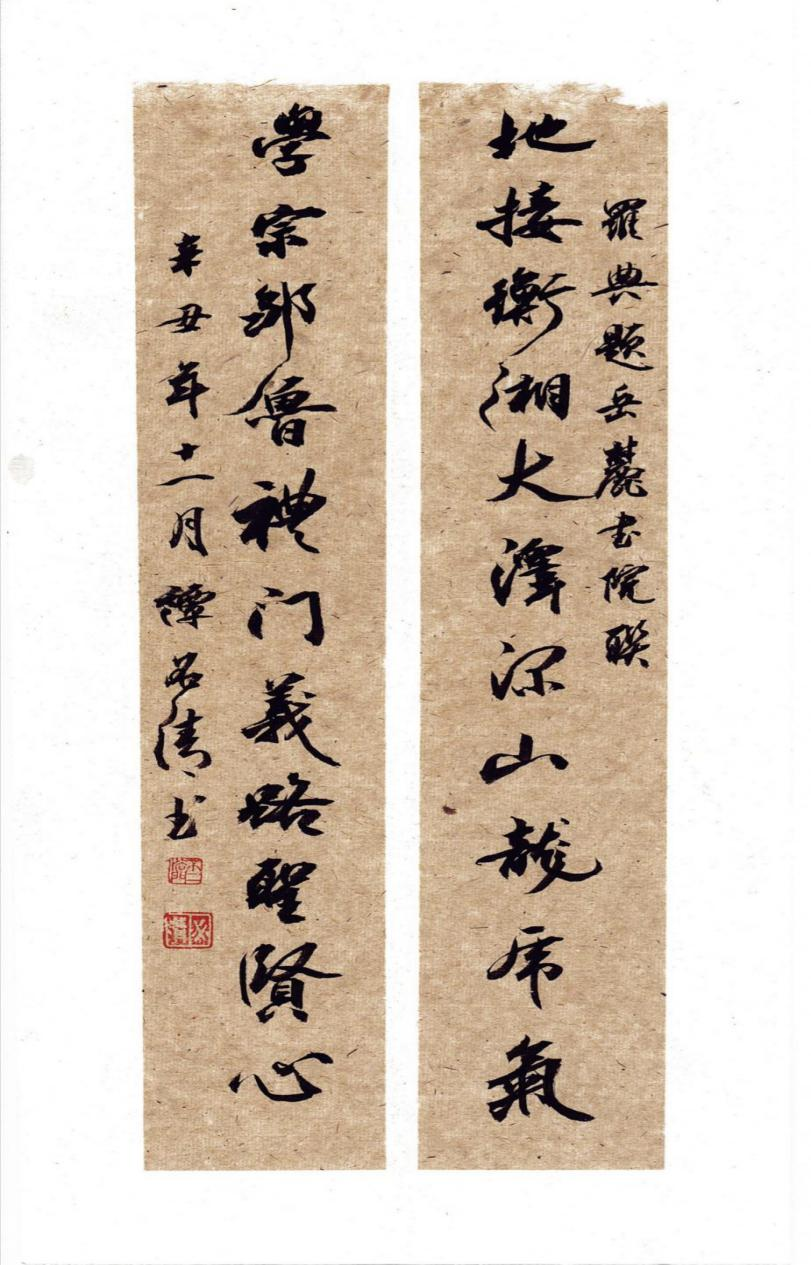 羅典題岳麓书院联
地接衡湘大澤深山龍虎氣
學宗鄒魯禮门義路聖賢心
辛丑年十一月譚名清书